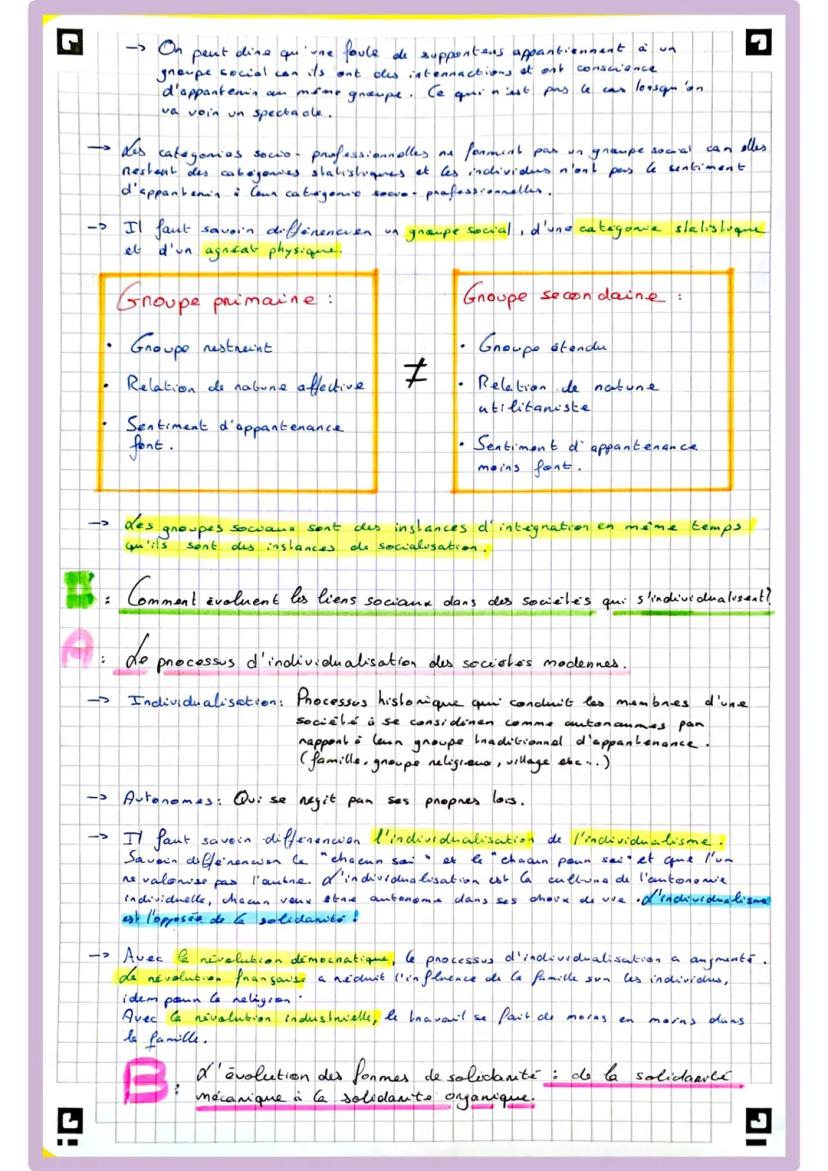 -> On peut dire qu'une foule de supporters appartiennent à un
groupe social car ils ont des interractions et ont conscience
d'appartenir au même groupe. Ce qui n'est pas le cas lorsqu'on
va voir un spectacle.
-> Les catégories socio-professionnelles ne forment pas un groupe social car elles
restent des catégories statistiques et les individus n'ont pas le sentiment
d'appartenir à leur catégorie socio-professionnelles.
-> Il faut savoir différencier un groupe social, d'une catégorie statistique
et d'un agréat physique.
Groupe primaire :
• Groupe restreint
• Relation de nature affective
• Sentiment d'appartenance
fort.
≠
Groupe secondaire :
• Groupe étendu
• Relation de nature
utilitariste
• Sentiment d'appartenance
moins fort.
-> Les groupes sociaux sont des instances d'intégration en même temps
qu'ils sont des instances de socialisation.
: Comment évoluent les liens sociaux dans des sociétés qui s'individualisent?
A : Le processus d'individualisation des sociétés modernes.
-> Individualisation : Processus historique qui conduit les membres d'une
société à se considérer comme autonomes par
rapport à leur groupe traditionnel d'appartenance.
(famille, groupe religieux, village etc...)
-> Autonomes : Qui se régit par ses propres lois.
-> Il faut savoir différencier l'individualisation de l'individualisme.
Savoir différencier le "chacun soi" et le "chacun pour soi" et que l'un
ne valorise pas l'autre. L'individualisation est la culture de l'autonomie
individuelle, chacun veux être autonome dans ses choix de vie. L'individualisme
est l'opposée de la solidarité !
-> Avec la révolution démocratique, le processus d'individualisation a augmenté.
La révolution française a réduit l'influence de la famille sur les individus,
idem pour la religion.
Avec la révolution industrielle, le travail se fait de moins en moins dans
la famille.
B : L'évolution des formes de solidarité : de la solidarité
mécanique à la solidarité organique.